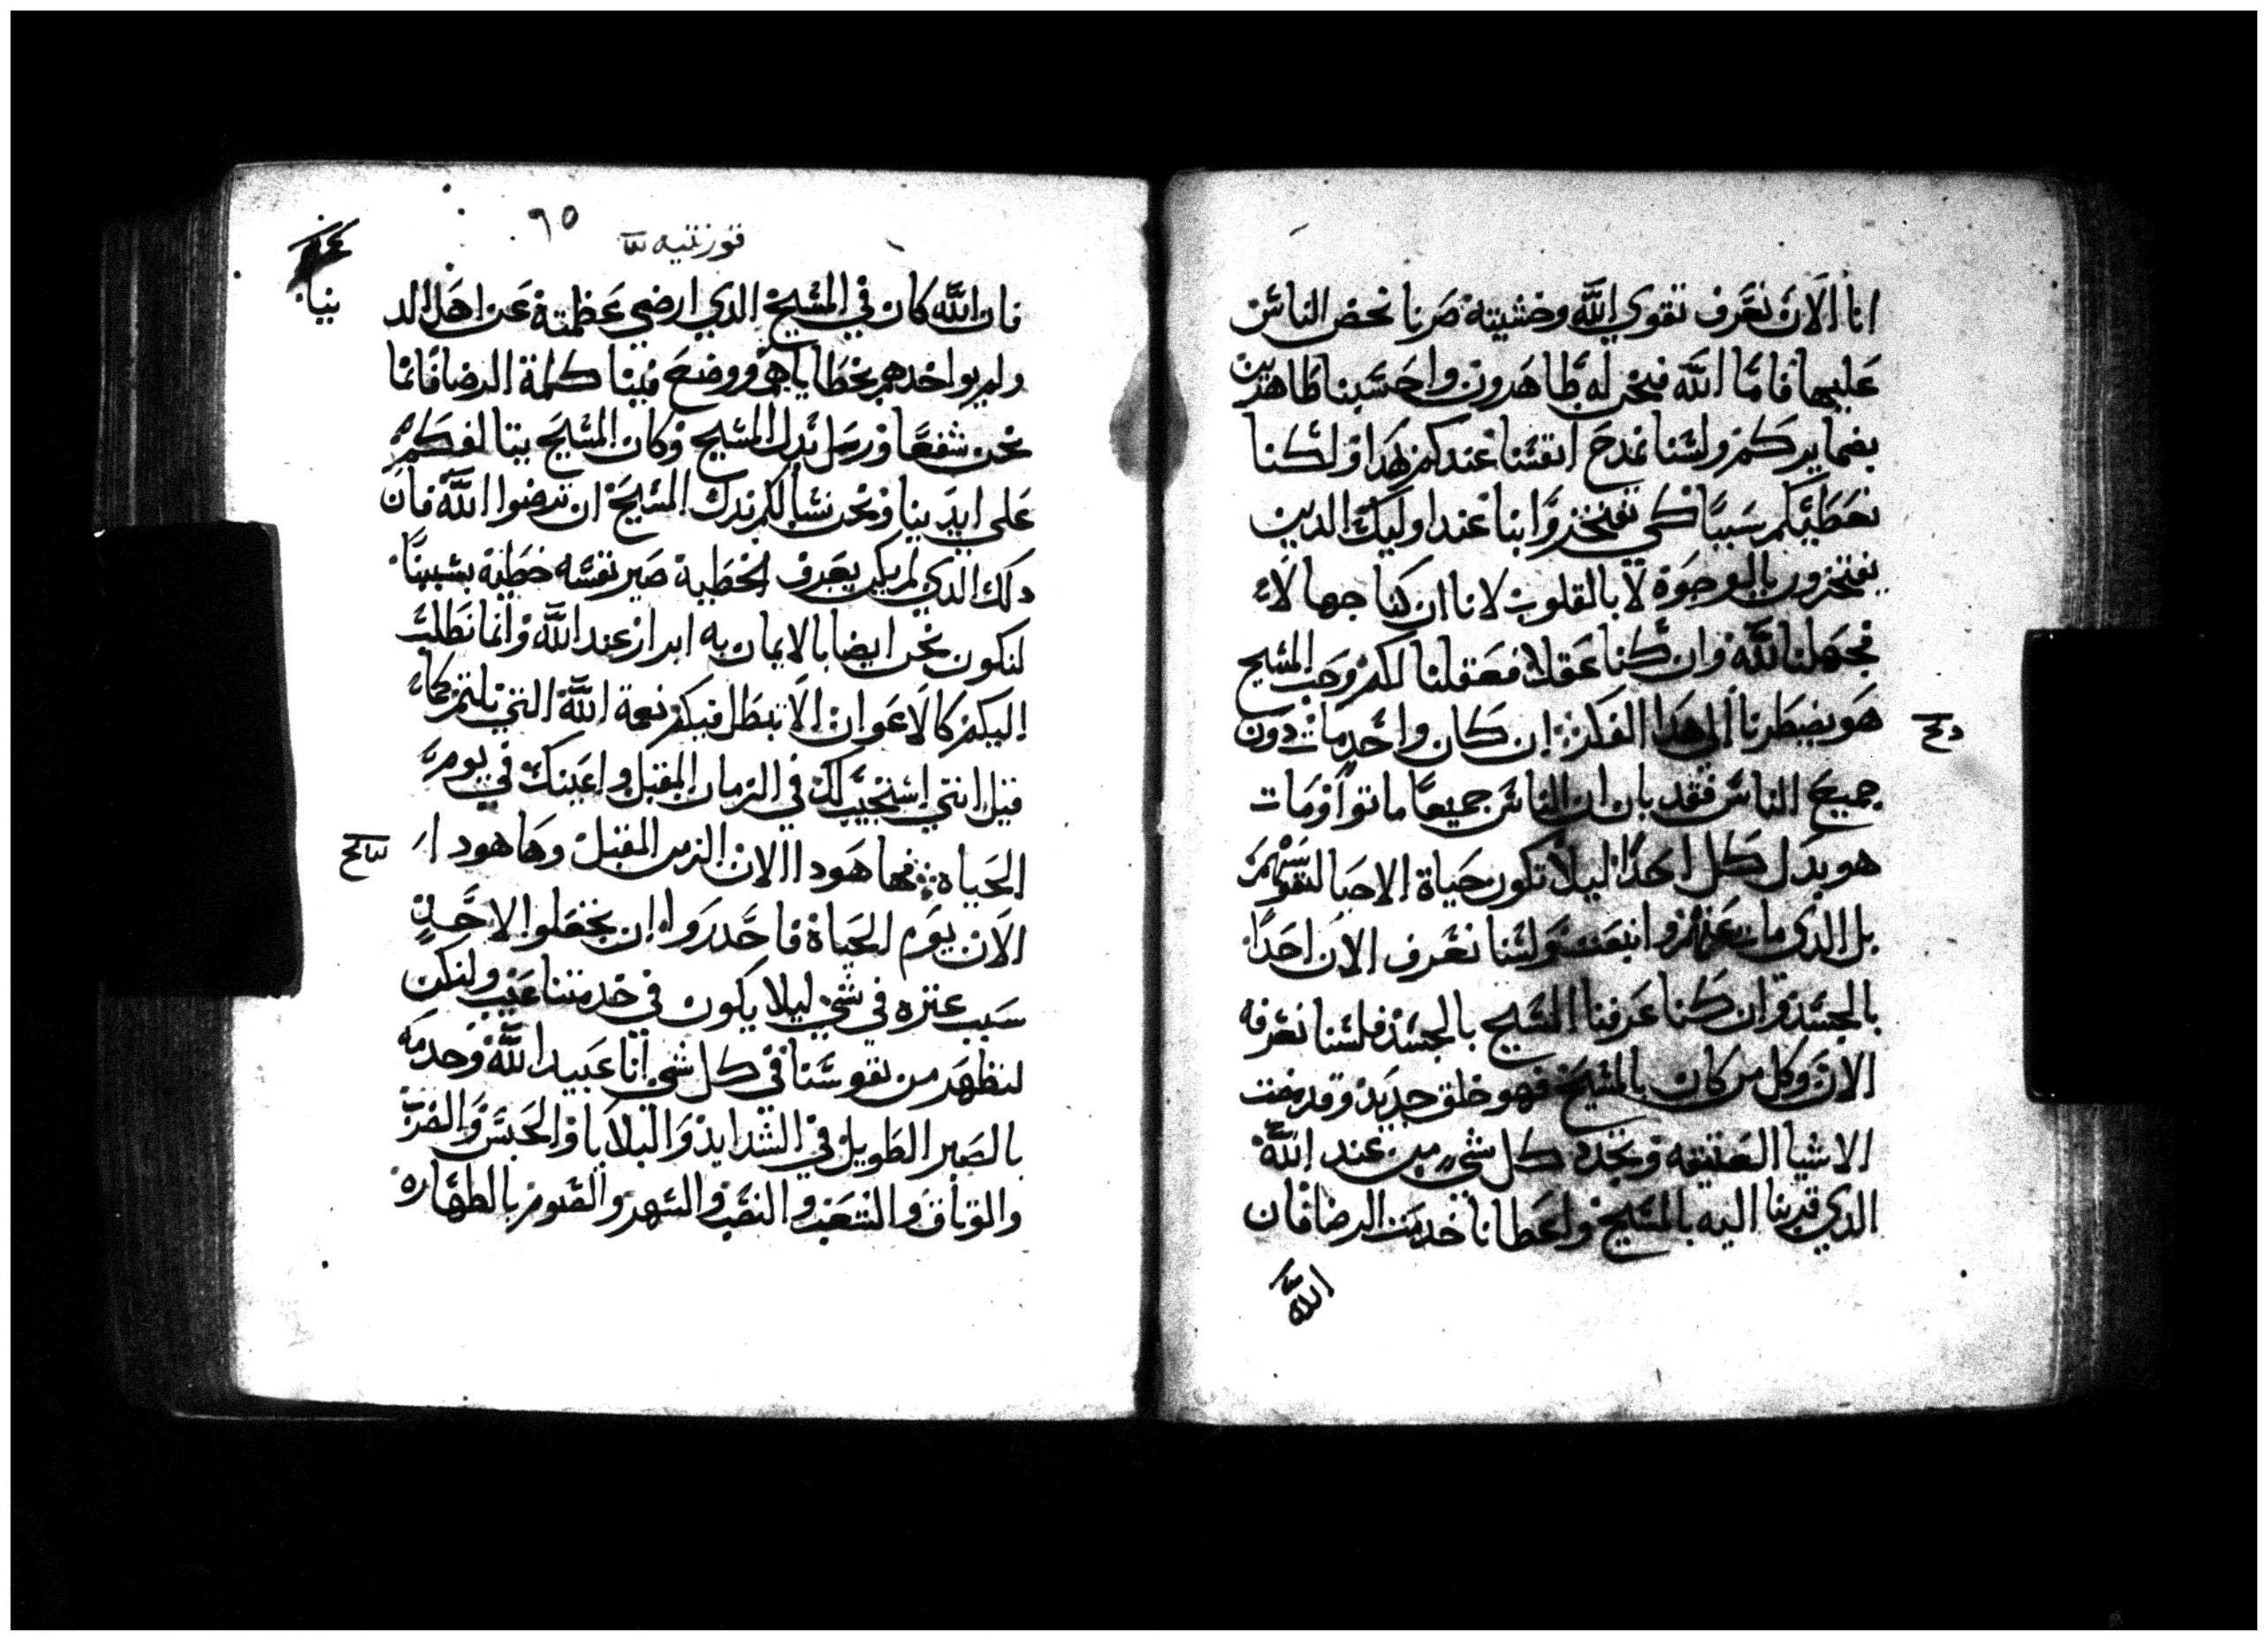 انا الان نعرف تقوي الله وخشيته صرنا نحض الناس
عليها فاما الله فنحن له ظاهرون واحسبنا ظاهرين
بضمايركم ولسنا نمدح انفسنا عندكم بهدا ولكنا
نعطيكم سببا كي تفتخروا بنا عند اوليك الدين
يفتخرون بالوجوه لا بالقلوب لانا ان كنا جهالاء
فجهلنا لله وان كنا عقلا فعقلنا لكم وحب المسيح
هو يضطرنا الي هدا الفكر ان كان واحد مات دون
جميع الناس فقد بان ان الناس جميعا ماتوا ومات
هو بدل كل احد ليلا تكون حياة الاحيا لنفوسهم
بل الدي مات عنهم وانبعث ولسنا نعرف الان احدا
بالجسد وان كنا عرفنا المسيح بالجسد فلسنا نعرفه
الان وكل من كان بالمسيح فهو خلق جديد وقد مضت
الاشيا العتيقه وتجدد كل شي من عند الله
الدي قربنا اليه بالمسيح واعطانا خدمت الرضا فان
الله
دح
٩٥
قورنتيه
فان الله كان في المسيح الدي ارضي عظمته عن اهل الد
نيا
ولم يواخدهم بخطاياهم ووضع فينا كلمة الرضا فانما
نحن شفعا ورسل بدل المسيح وكان المسيح يتالفكم
علي ايدينا ونحن نسالكم بدل المسيح ان ترضوا الله فان
دلك الدي لم يكن يعرف الخطية صير نفسه خطية بسببنا
لنكون نحن ايضا بالايمان به ابرار عند الله وانما نطلب
اليكم كالاعوان الا تبطل فيكم نعمة الله التي نلتموها
قيل انني استجيب لك في الزمان المقبل واعينك في يوم
الحياه فها هودا الان الزمن المقبل وها هودا
الان يوم الحياة فاحدروا ان تجعلوا لاحد
سبب عتره في شي ليلا يكون في خدمتنا عيب ولنكن
لنظهر من نفوسنا في كل شي انا عبيد الله وخدمه
بالصبر الطويل في الشدايد والبلايا والحبس والضرب
والوثاق والشغب والنصب والسهر والصوم بالطهاره